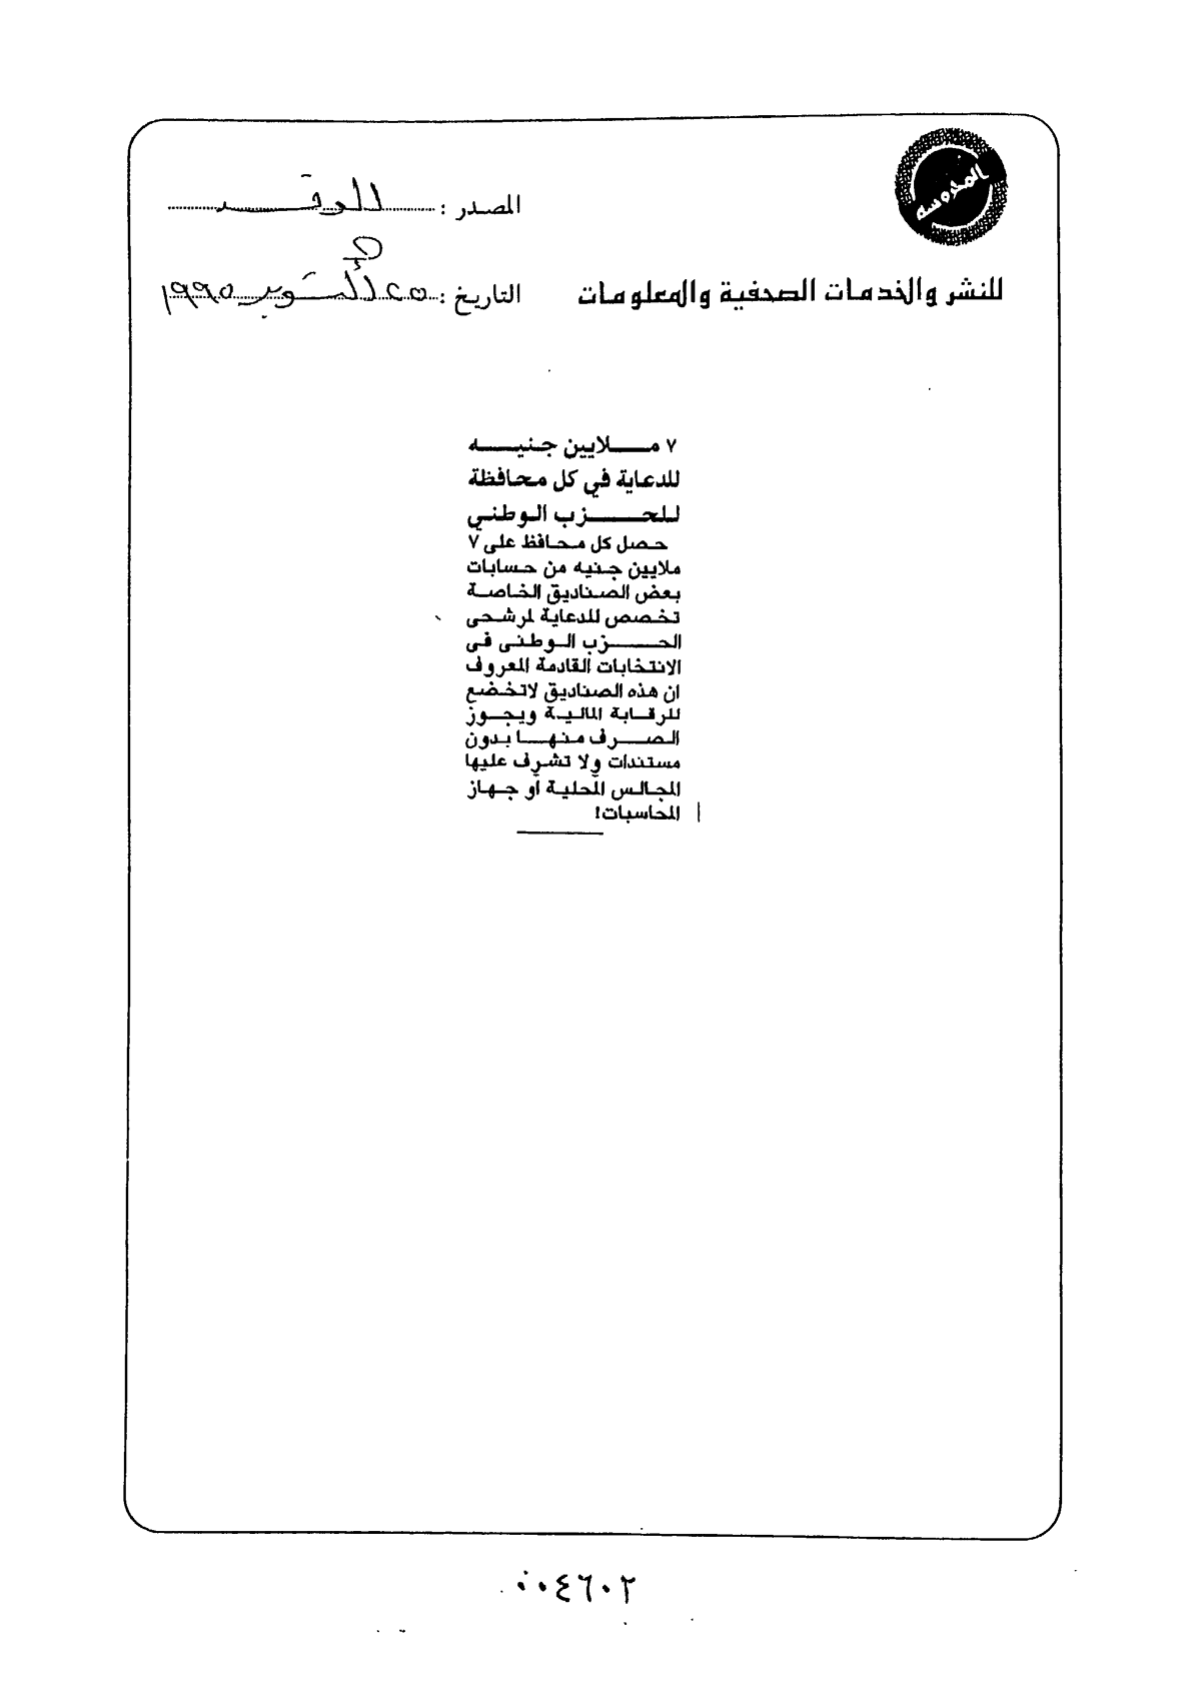 المحروسه
المصدر : الوفد
للنشر والخدمات الصحفية والمعلومات
التاريخ : ٢٥ أكتوبر ١٩٩٥
٧ مـلايين جنيـه
للدعاية في كل محافظة
للحـزب الوطني
حصل كل محافظ على ٧
ملايين جنيه من حسابات
بعض الصناديق الخاصة
تخصص للدعاية لمرشحى
الحـزب الوطنى فى
الانتخابات القادمة المعروف
ان هذه الصناديق لاتخضع
للرقابة المالية ويجوز
الصرف منها بدون
مستندات ولا تشرف عليها
المجالس المحلية أو جهاز
المحاسبات!
٠٠٤٦٠٢